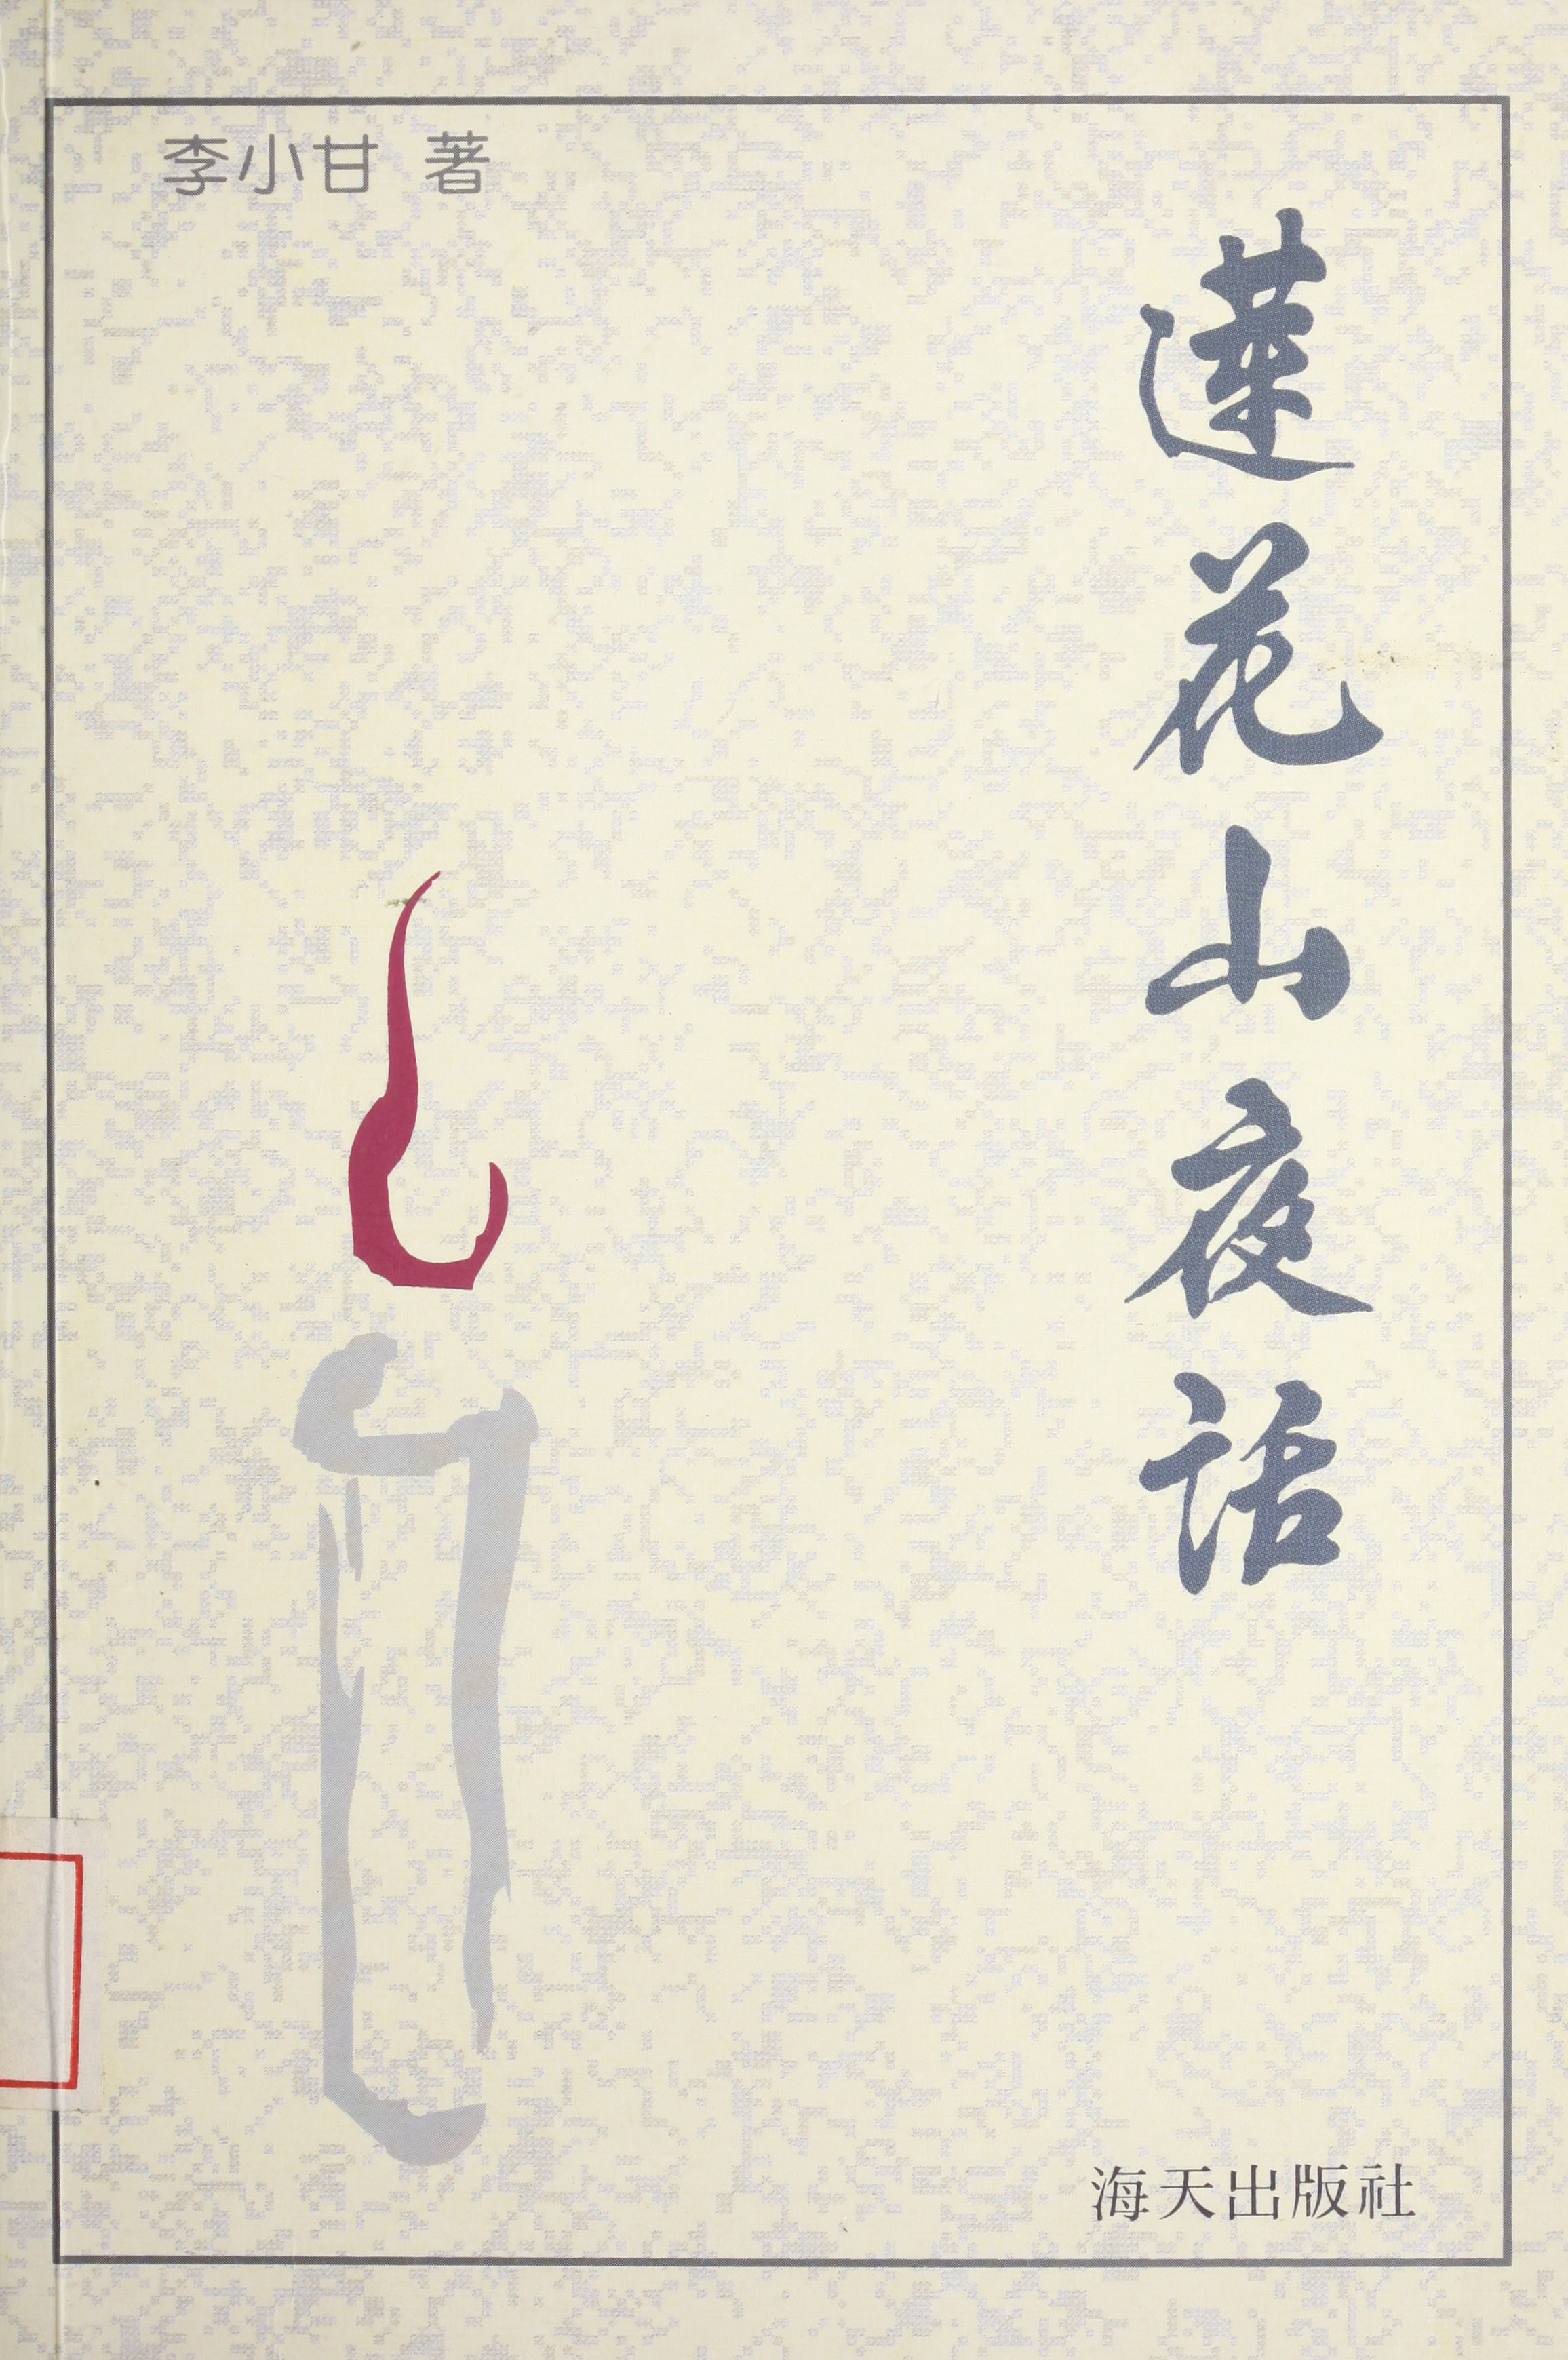 李小甘 著
蓮花山夜話
海天出版社